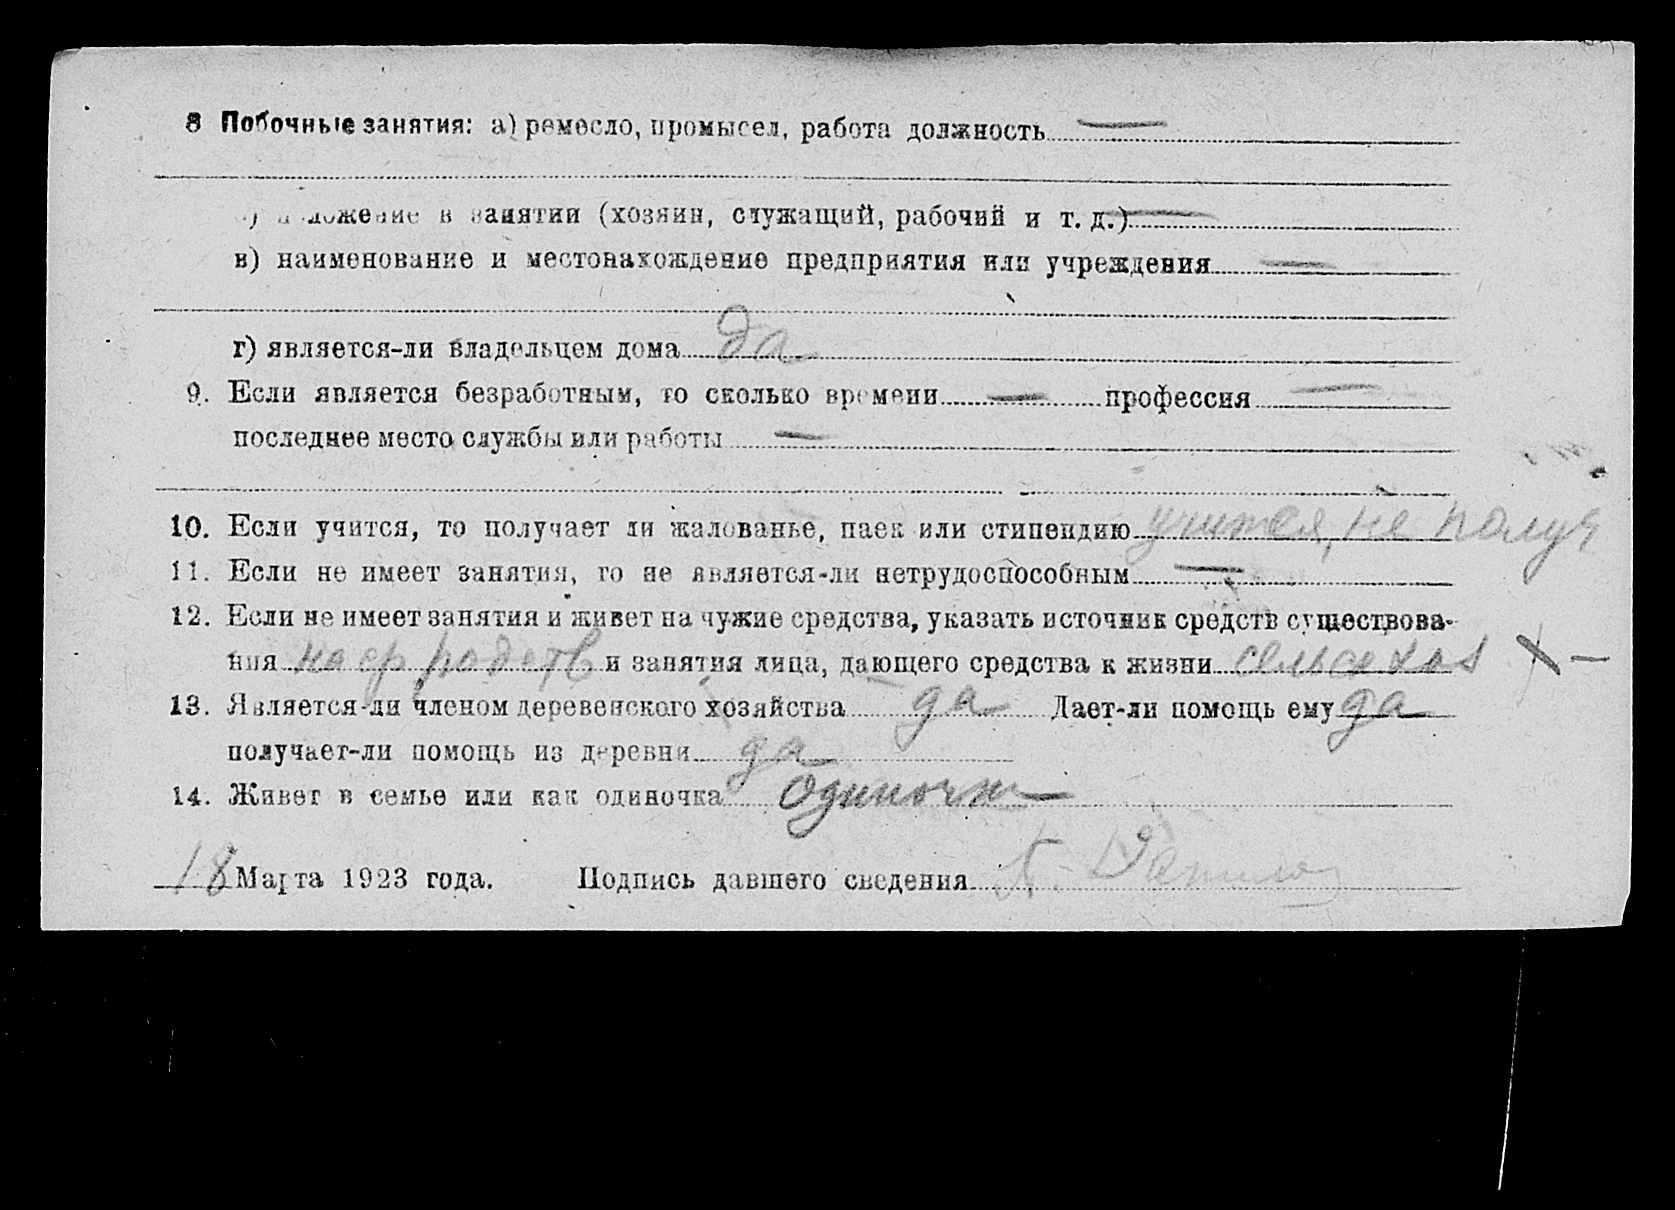 8 Побочные занятия: а) ремесло, промысел, работа должность —
положение в занятии (хозяин, служащий, рабочий и т. д.) —
в) наименование и местонахождение предприятия или учреждения —
г) является-ли владельцем дома да
9. Если является безработным, то сколько времени — профессия —
последнее место службы или работы —
10. Если учится, то получает ли жалованье, паек или стипендию учится, не получ
11. Если не имеет занятия, то не является-ли нетрудоспособным —
12. Если не имеет занятия и живет на чужие средства, указать источник средств существова-
ния на ср родств и занятия лица, дающего средства к жизни сельск хоз X —
13. Является-ли членом деревенского хозяйства да Дает-ли помощь ему да
получает-ли помощь из деревни да
14. Живет в семье или как одиночка Одиночк
18 Марта 1923 года. Подпись давшего сведения